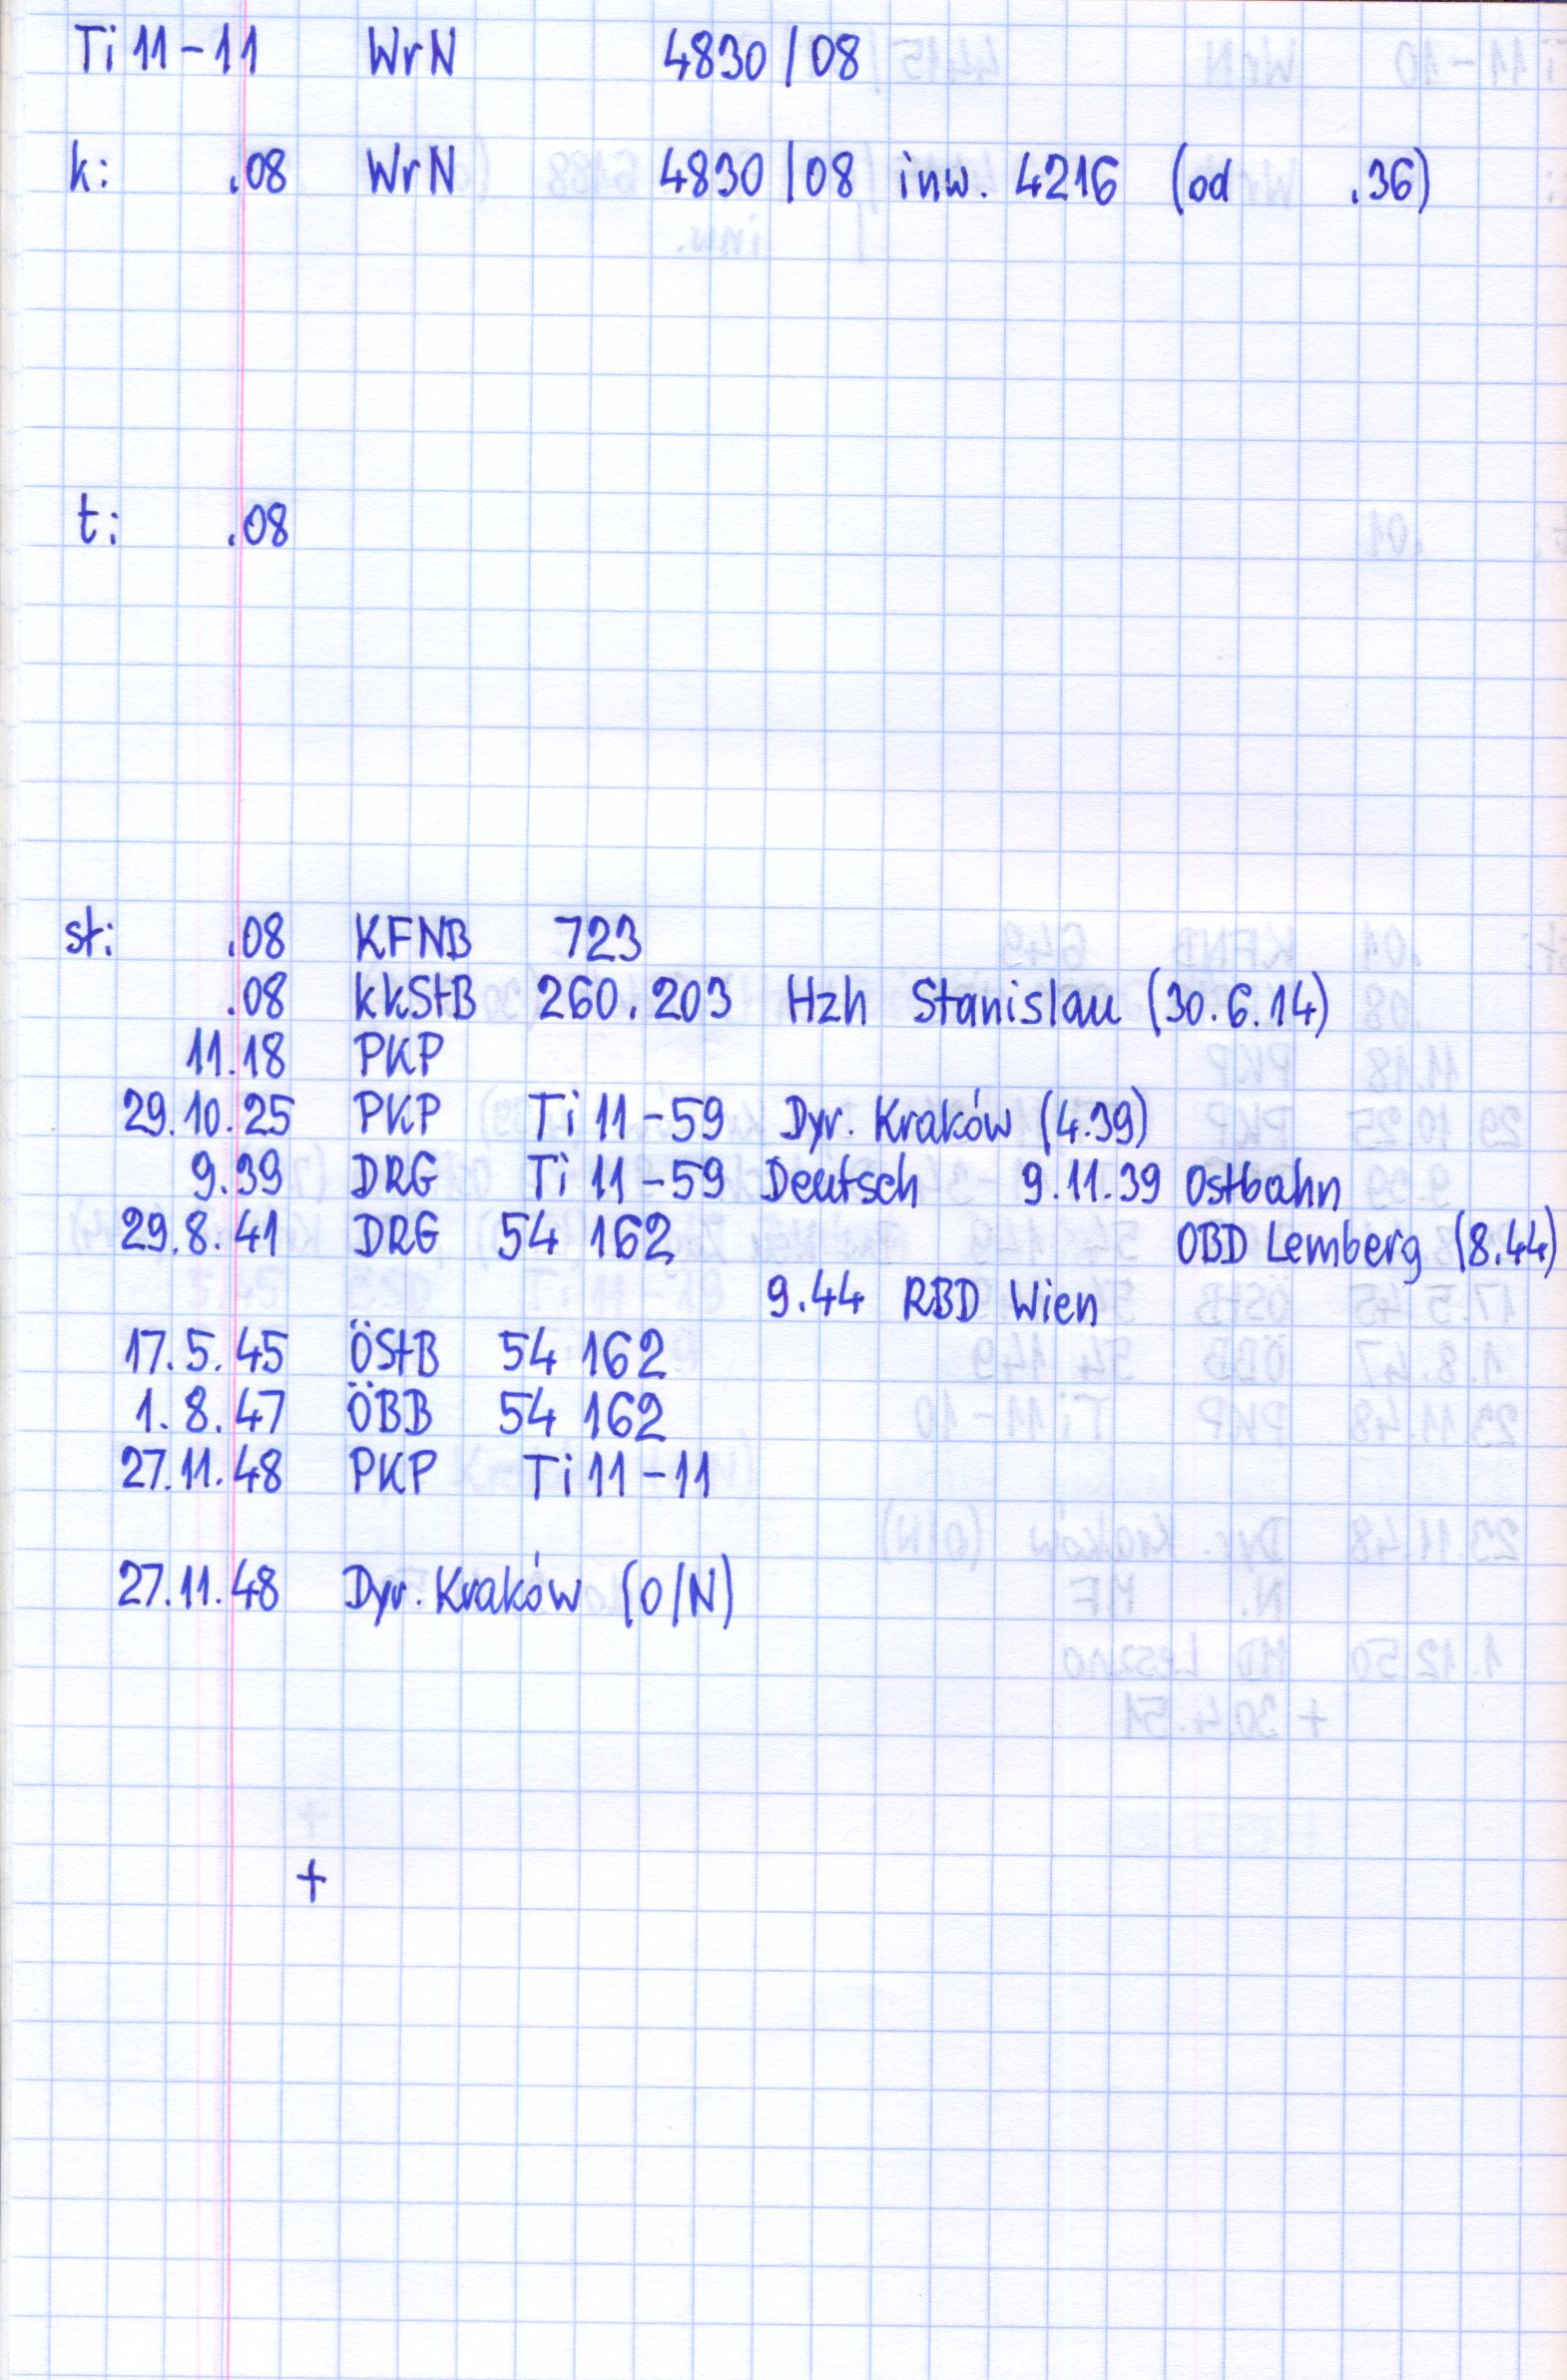 Ti 11-11 WrN 4830/08
k: .08 WrN 4830/08 inw. 4216 (od .36)
t: .08
st: .08 KFNB 723
.08 kkStB 260.203 Hzh Stanislau (30.6.14)
11.18 PKP
29.10.25 PKP Ti 11-59 Dyr. Kraków (4.39)
9.39 DRG Ti 11-59 Deutsch 9.11.39 Ostbahn
29.8.41 DRG 54 162 OBD Lemberg (8.44)
9.44 RBD Wien
17.5.45 ÖStB 54 162
1.8.47 ÖBB 54 162
27.11.48 PKP Ti 11-11
27.11.48 Dyr. Kraków (O/N)
+